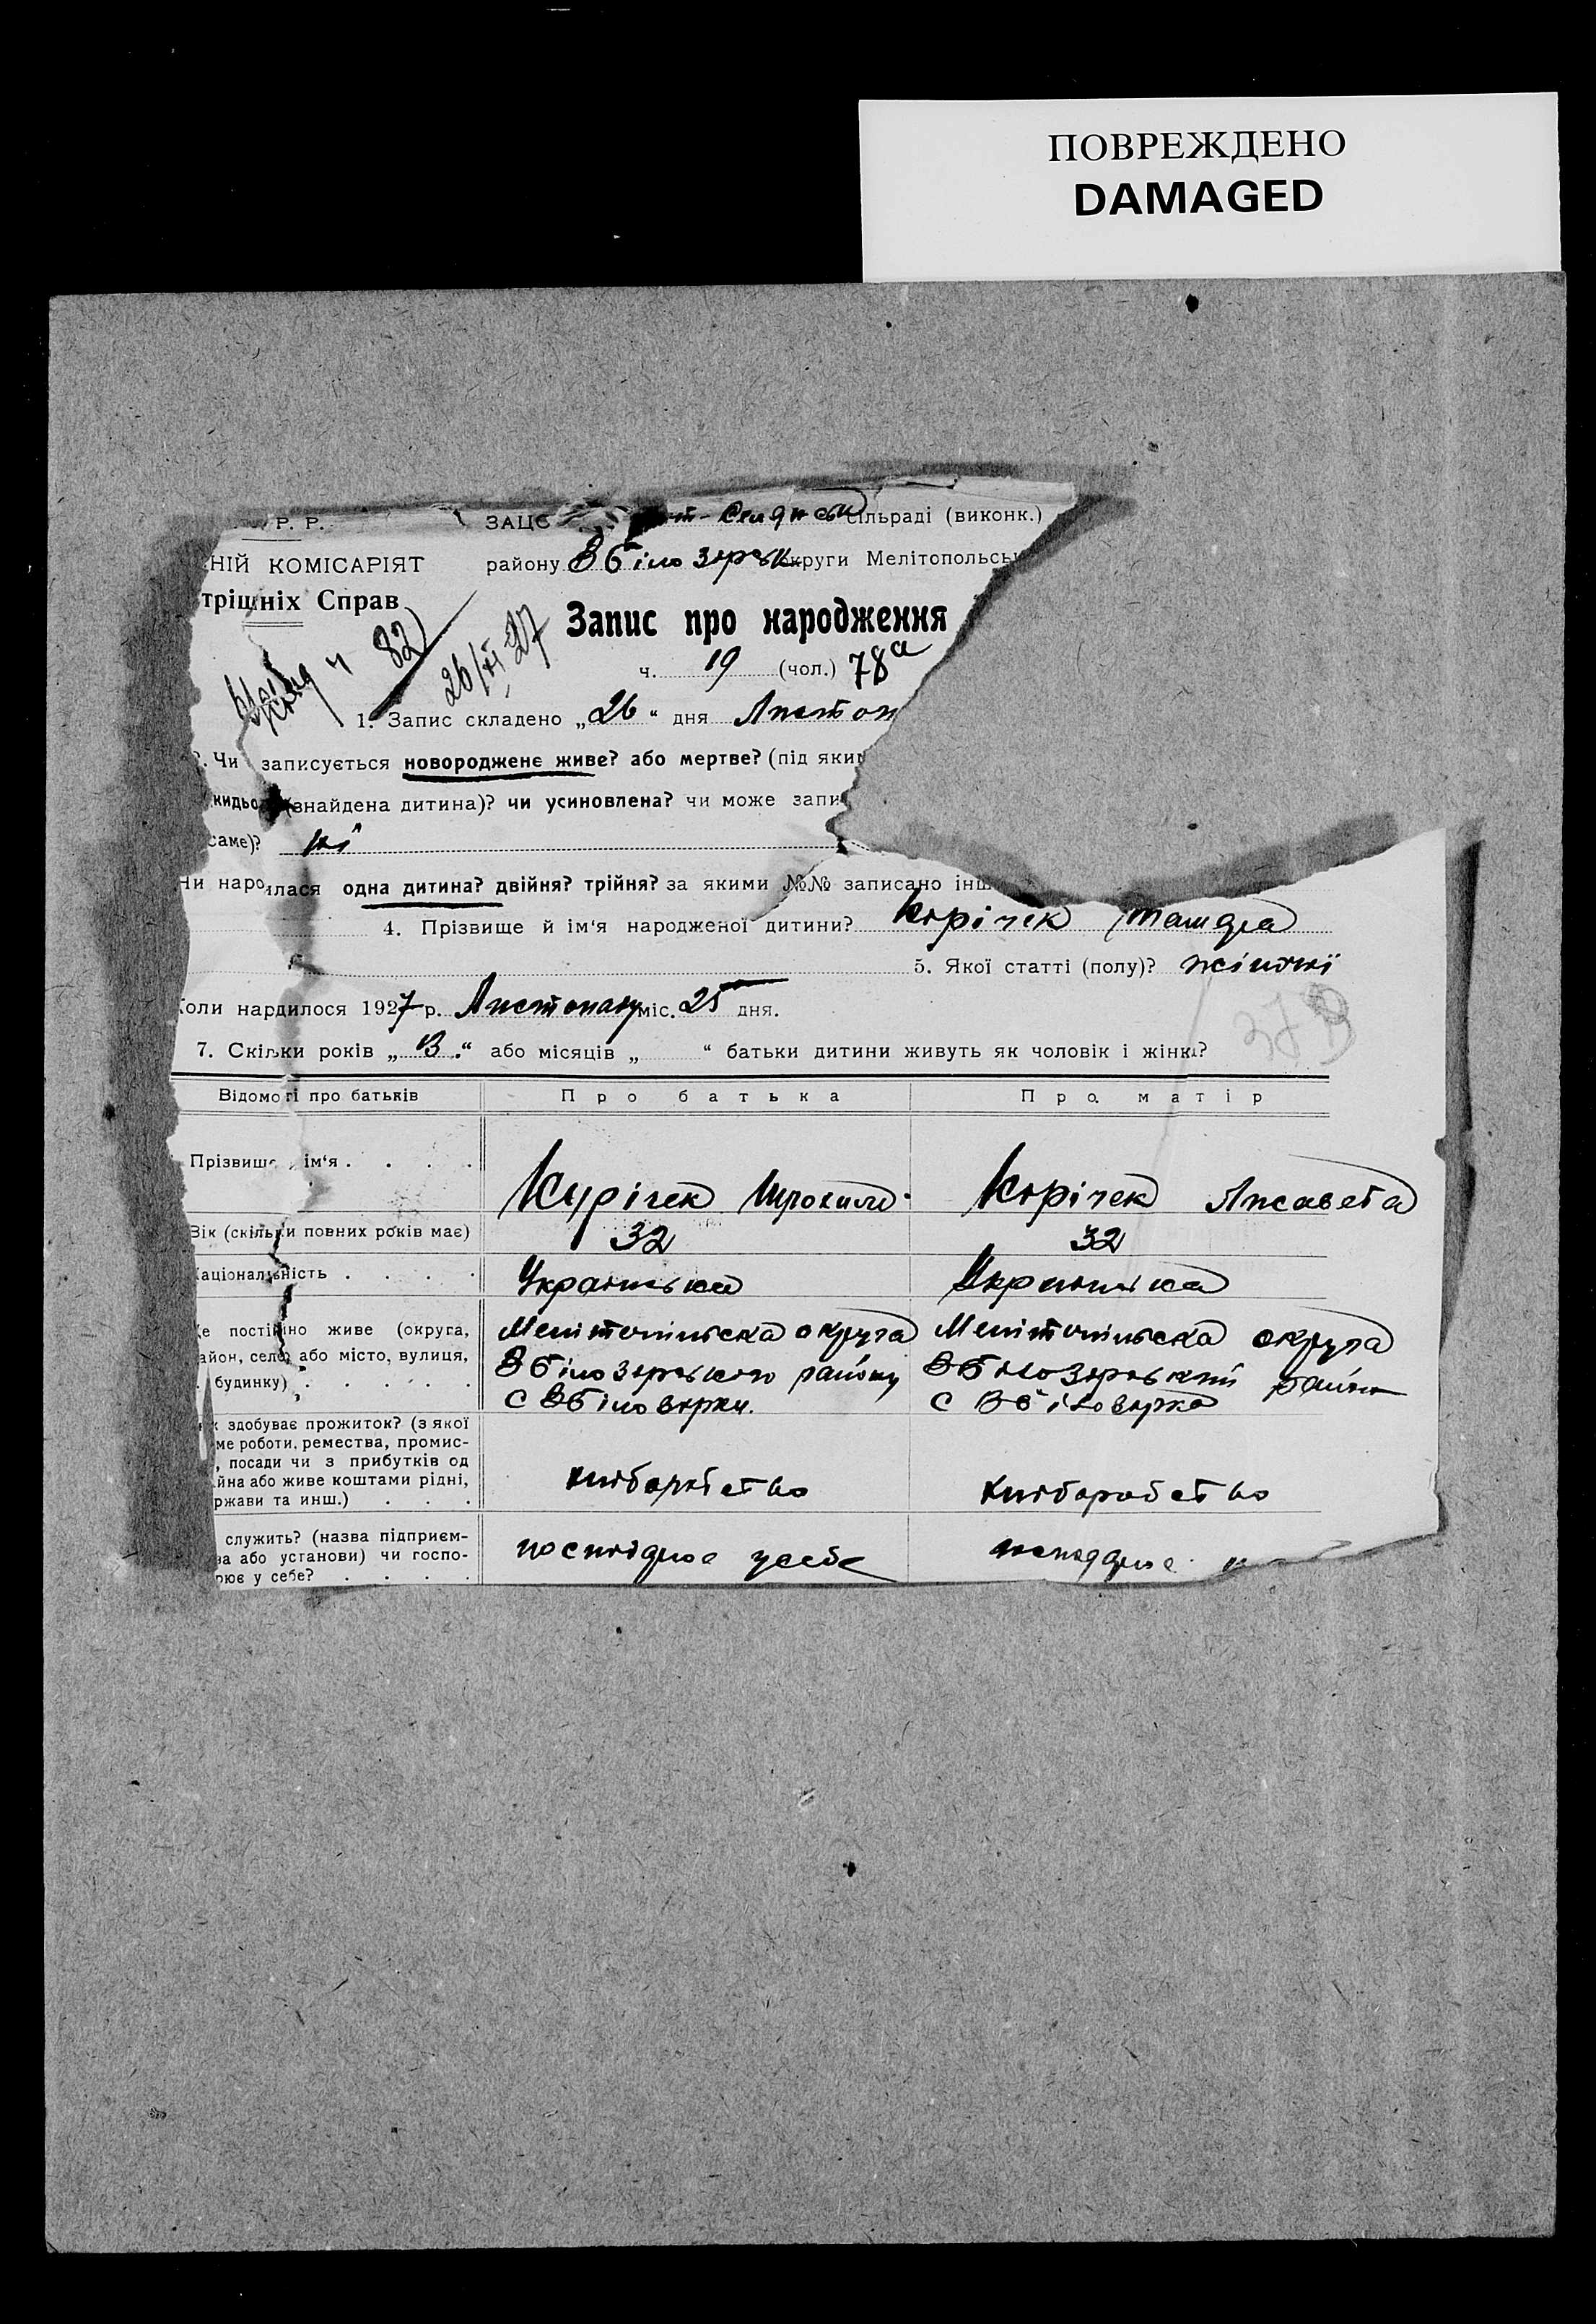 ПОВРЕЖДЕНО
DAMAGED
Р. Р.
ЗАЦС сільраді (виконк.)
НІЙ КОМІСАРІЯТ
району В Білозерськ округи Мелітопольсь
трішніх Справ
ч 82
26/XI 27
Запис про народження
ч. 19 (чол.) 78а
1. Запис складено „26“ дня Листоп
2. Чи записується новороджене живе? або мертве? (під яки
кидьо (знайдена дитина)? чи усиновлена? чи може запи
саме)? ні
Чи народилася одна дитина? двійня? трійня? за якими №№ записано інш
4. Прізвище й ім'я народженої дитини? Корічек
5. Якої статті (полу)? жіночої
Коли нардилося 1927 р. Листопаду міс. 25 дня.
7. Скільки років „13“ або місяців „ “ батьки дитини живуть як чоловік і жінка?
379
Відомості про батьків
Про батька
Про матір
Прізвище ім'я
Курічек
Корічек Лисавета
Вік (скільки повних років має)
32
32
Національність
Українська
Українська
Де постійно живе (округа,
район, село, або місто, вулиця,
будинку)
Мелітопільска округа
В Білозерського району
с В Білозерки.
Мелітопільска округа
В Білозерський район
с В Білозерка
здобуває прожиток? (з якої
ме роботи, ремества, промис-
, посади чи з прибутків од
йна або живе коштами рідні,
ржави та инш.)
хліборобство
хліборобство
служить? (назва підприєм-
ва або установи) чи госпо-
рює у себе?
господрює у себе
господрює